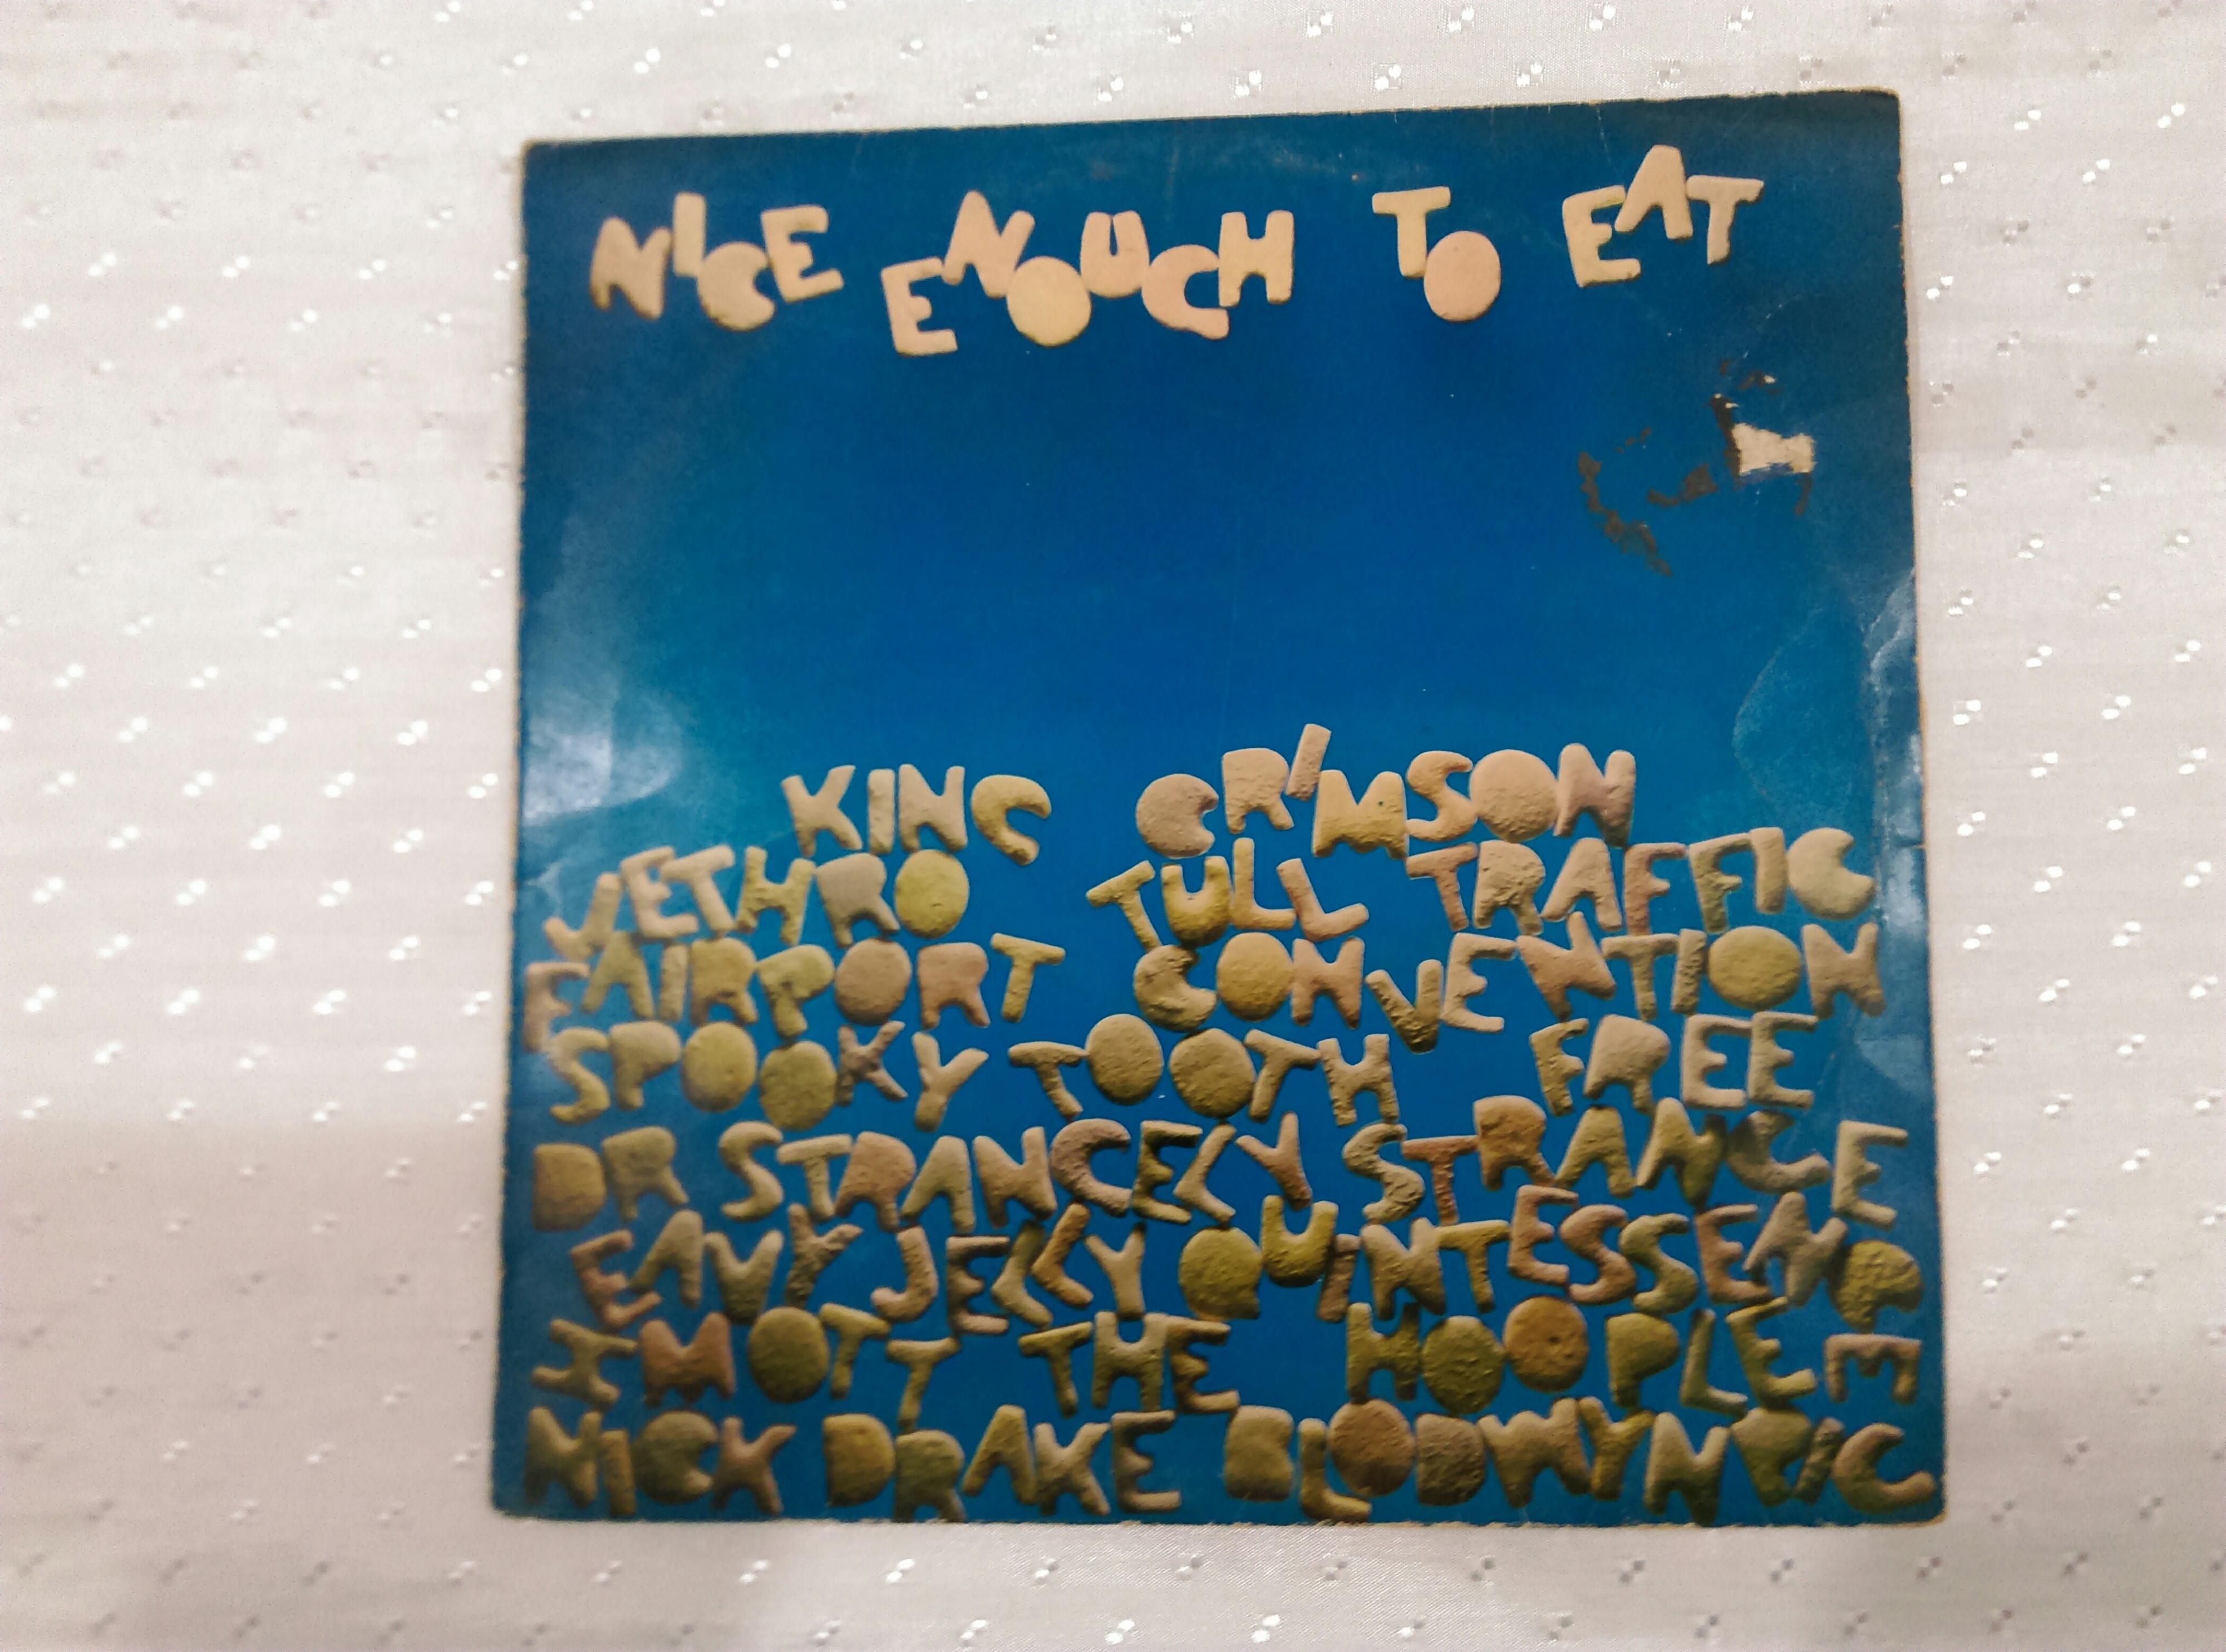 NICE ENOUGH TO EAT
KING CRIMSON
JETHRO TULL TRAFFIC
FAIRPORT CONVENTION
SPOOKY TOOTH FREE
DR STRANGELY STRANGE
HEAVY JELLY QUINTESSENCE
MOTT THE HOOPLE
NICK DRAKE BLODWYN PIG